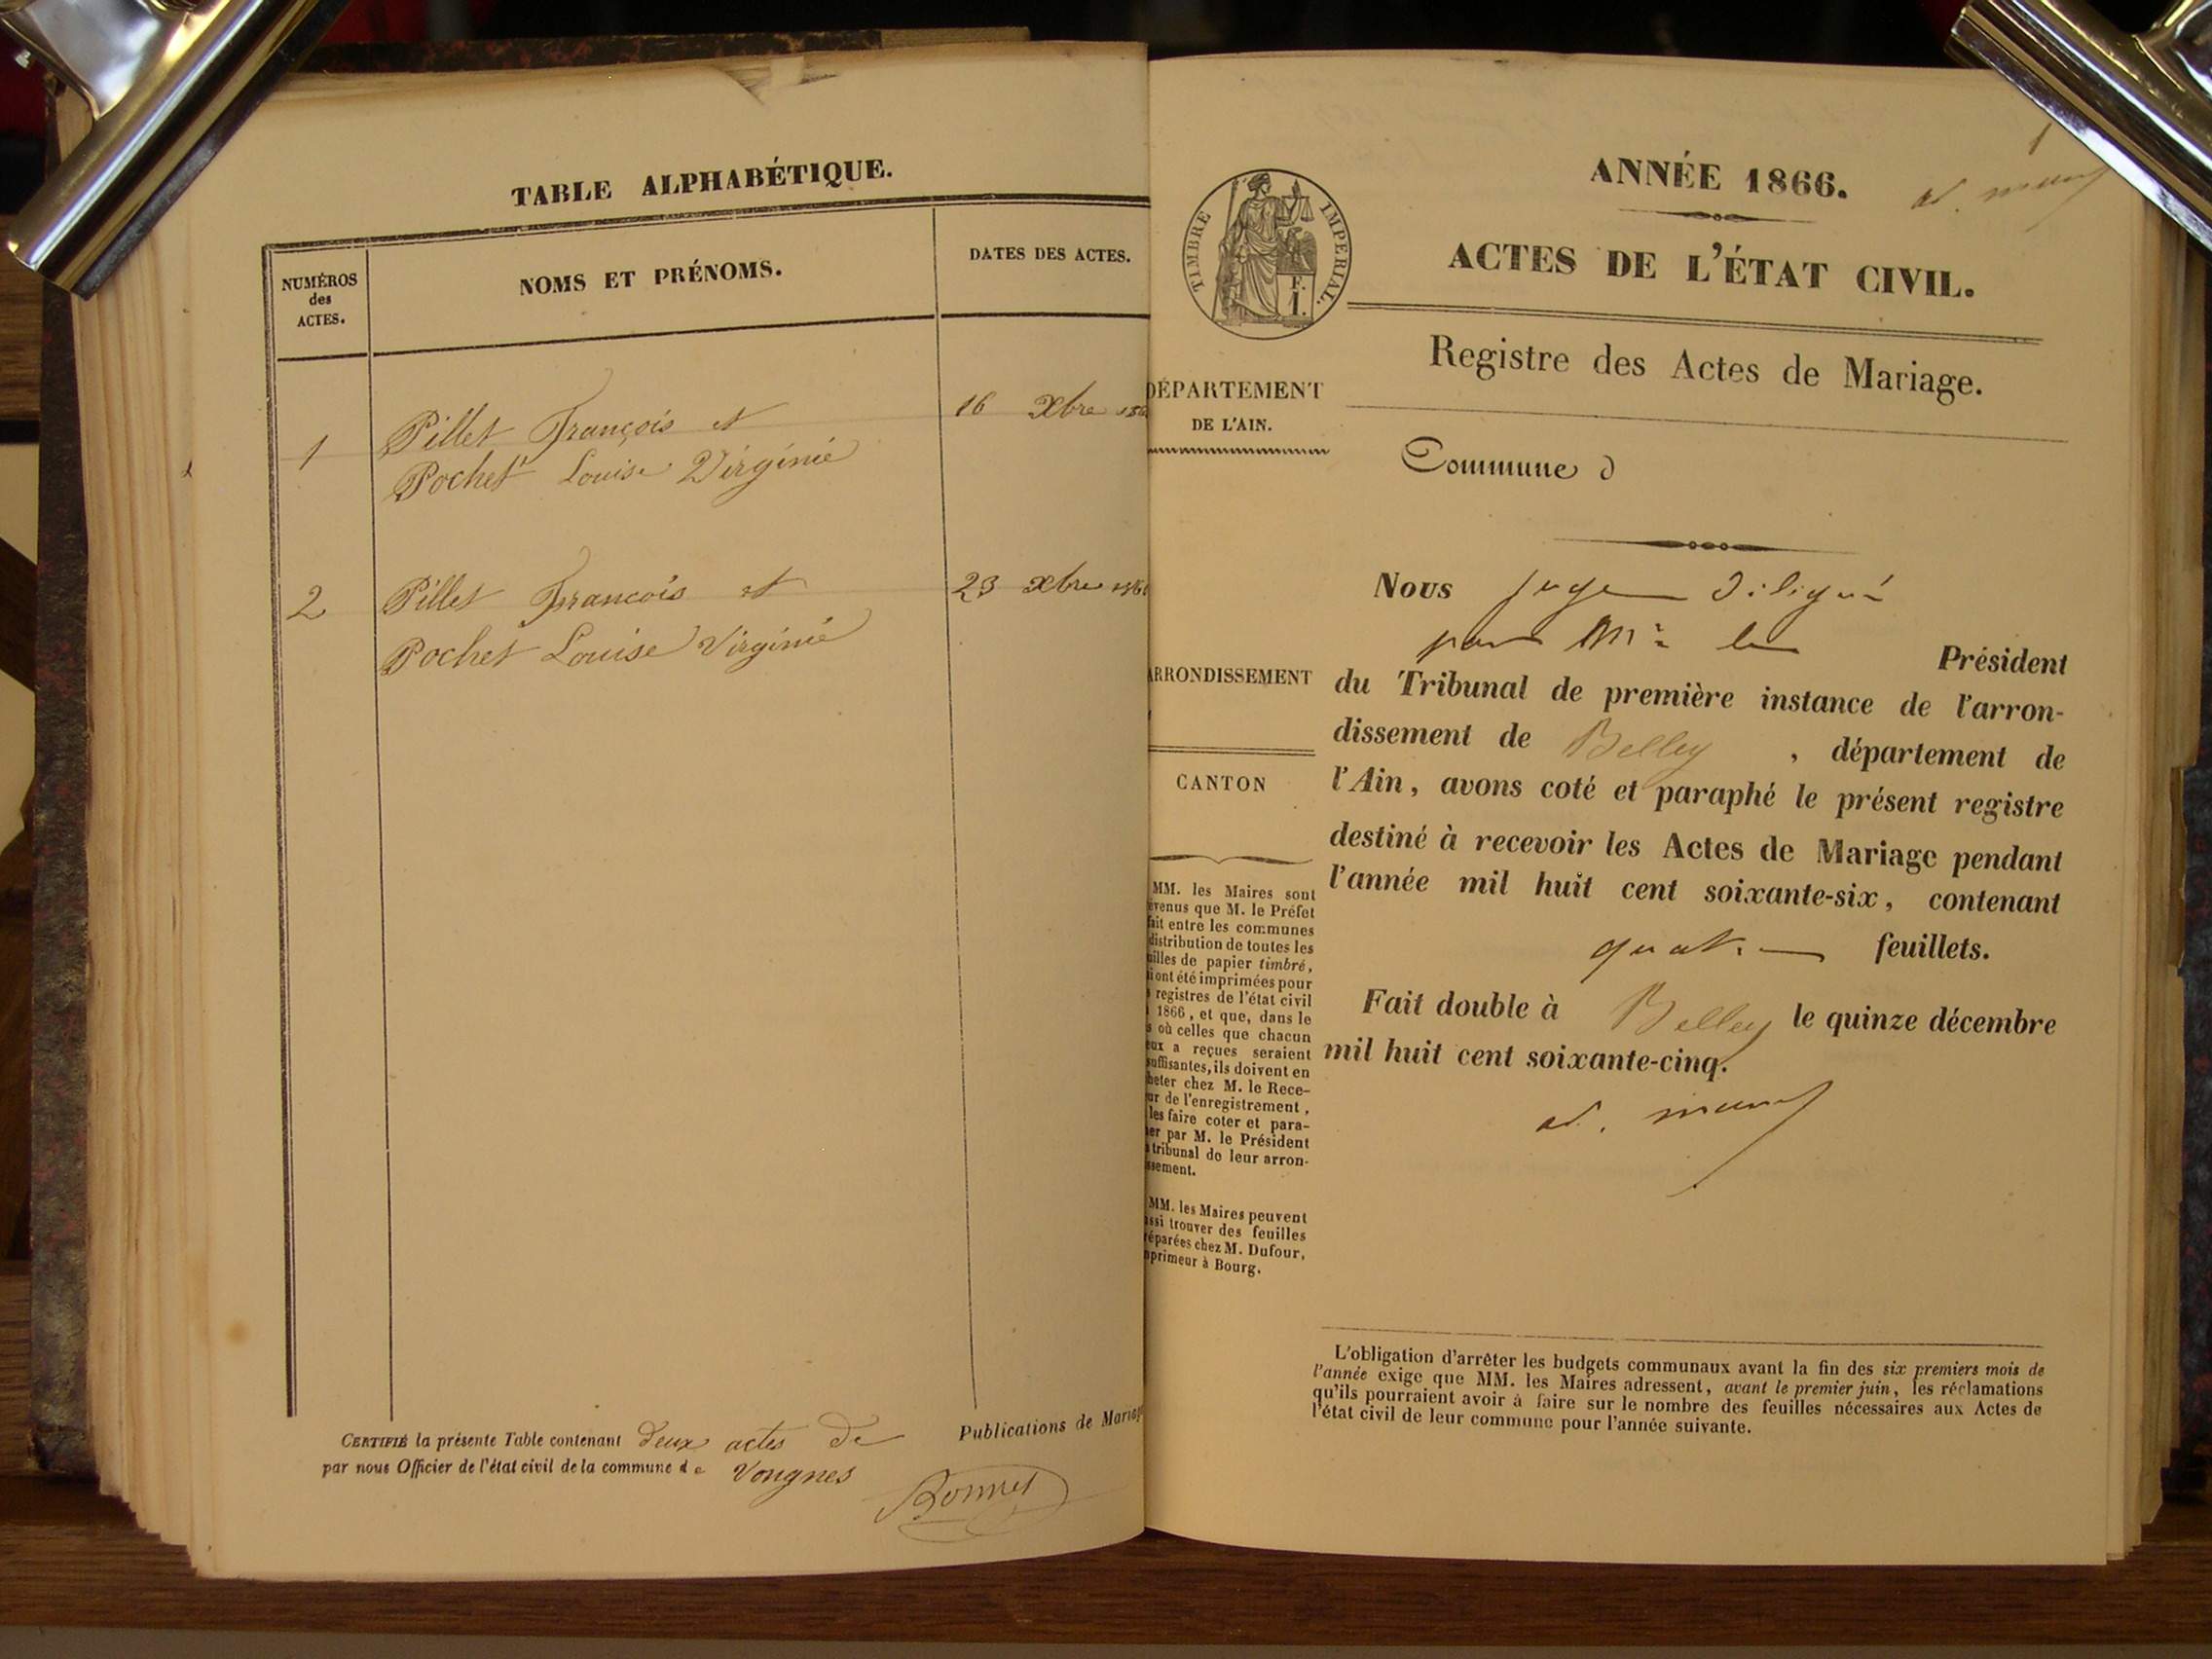 TABLE ALPHABÉTIQUE.
NUMÉROS
des
ACTES.
NOMS ET PRÉNOMS.
DATES DES ACTES.
1 Pillet François et 16 Xbre
Pochet Louise Virginie
2 Pillet François et 23 Xbre
Pochet Louise Virginie
CERTIFIÉ la présente Table contenant deux actes de Publications de Mariage
par nous Officier de l'état civil de la commune de Vongnes
Bonnet
1
ANNÉE 1866.
TIMBRE IMPERIAL.
F.
1.
ACTES DE L'ÉTAT CIVIL.
Registre des Actes de Mariage.
DÉPARTEMENT
DE L'AIN.
Commune d
ARRONDISSEMENT
CANTON
MM. les Maires sont
évenus que M. le Préfet
fait entre les communes
distribution de toutes les
uilles de papier timbré,
i ont été imprimées pour
s registres de l'état civil
1866, et que, dans le
s où celles que chacun
eux a reçues seraient
suffisantes, ils doivent en
heter chez M. le Rece-
ur de l'enregistrement,
les faire coter et para-
her par M. le Président
tribunal de leur arron-
ssement.
MM. les Maires peuvent
ssi trouver des feuilles
réparées chez M. Dufour,
mprimeur à Bourg.
Nous juge délégué
par Mr le Président
du Tribunal de première instance de l'arron-
dissement de Belley , département de
l'Ain, avons coté et paraphé le présent registre
destiné à recevoir les Actes de Mariage pendant
l'année mil huit cent soixante-six, contenant
quatre feuillets.
Fait double à Belley le quinze décembre
mil huit cent soixante-cinq.
L'obligation d'arrêter les budgets communaux avant la fin des six premiers mois de
l'année exige que MM. les Maires adressent, avant le premier juin, les réclamations
qu'ils pourraient avoir à faire sur le nombre des feuilles nécessaires aux Actes de
l'état civil de leur commune pour l'année suivante.